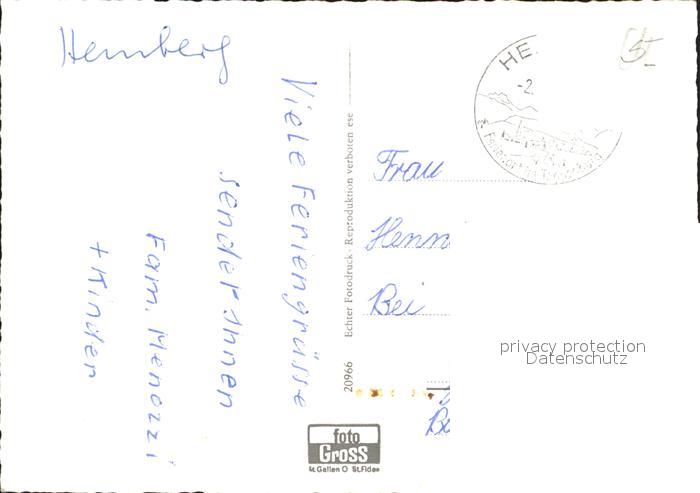 Hemberg
Viele Feriengrüsse
sendet Ihnen
Fam. Menozzi
+ Kinder
Echter Fotodruck · Reproduktion verboten ese
20966
HE
-2.
Frau
Henn
Bei
privacy protection
Datenschutz
foto
GROSS
St. Gallen O St. Fiden